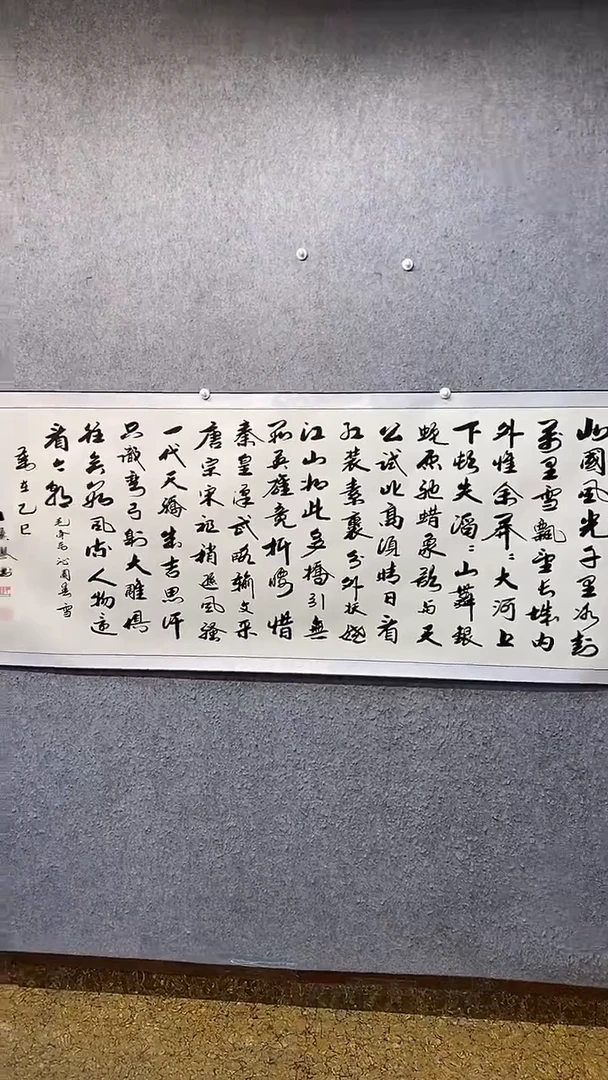 北國風光千里冰封
萬里雪飄望长城内
外惟余莽〻大河上
下頓失滔〻山舞銀
蛇原驰蜡象欲与天
公試比高須晴日看
红装素裹分外妖娆
江山如此多嬌引無
數英雄竞折腰惜
秦皇漢武略輸文采
唐宗宋祖稍遜風騷
一代天驕成吉思汗
只識彎弓射大雕俱
往矣數風流人物還
看今朝
毛泽东沁園春雪
歲在乙巳